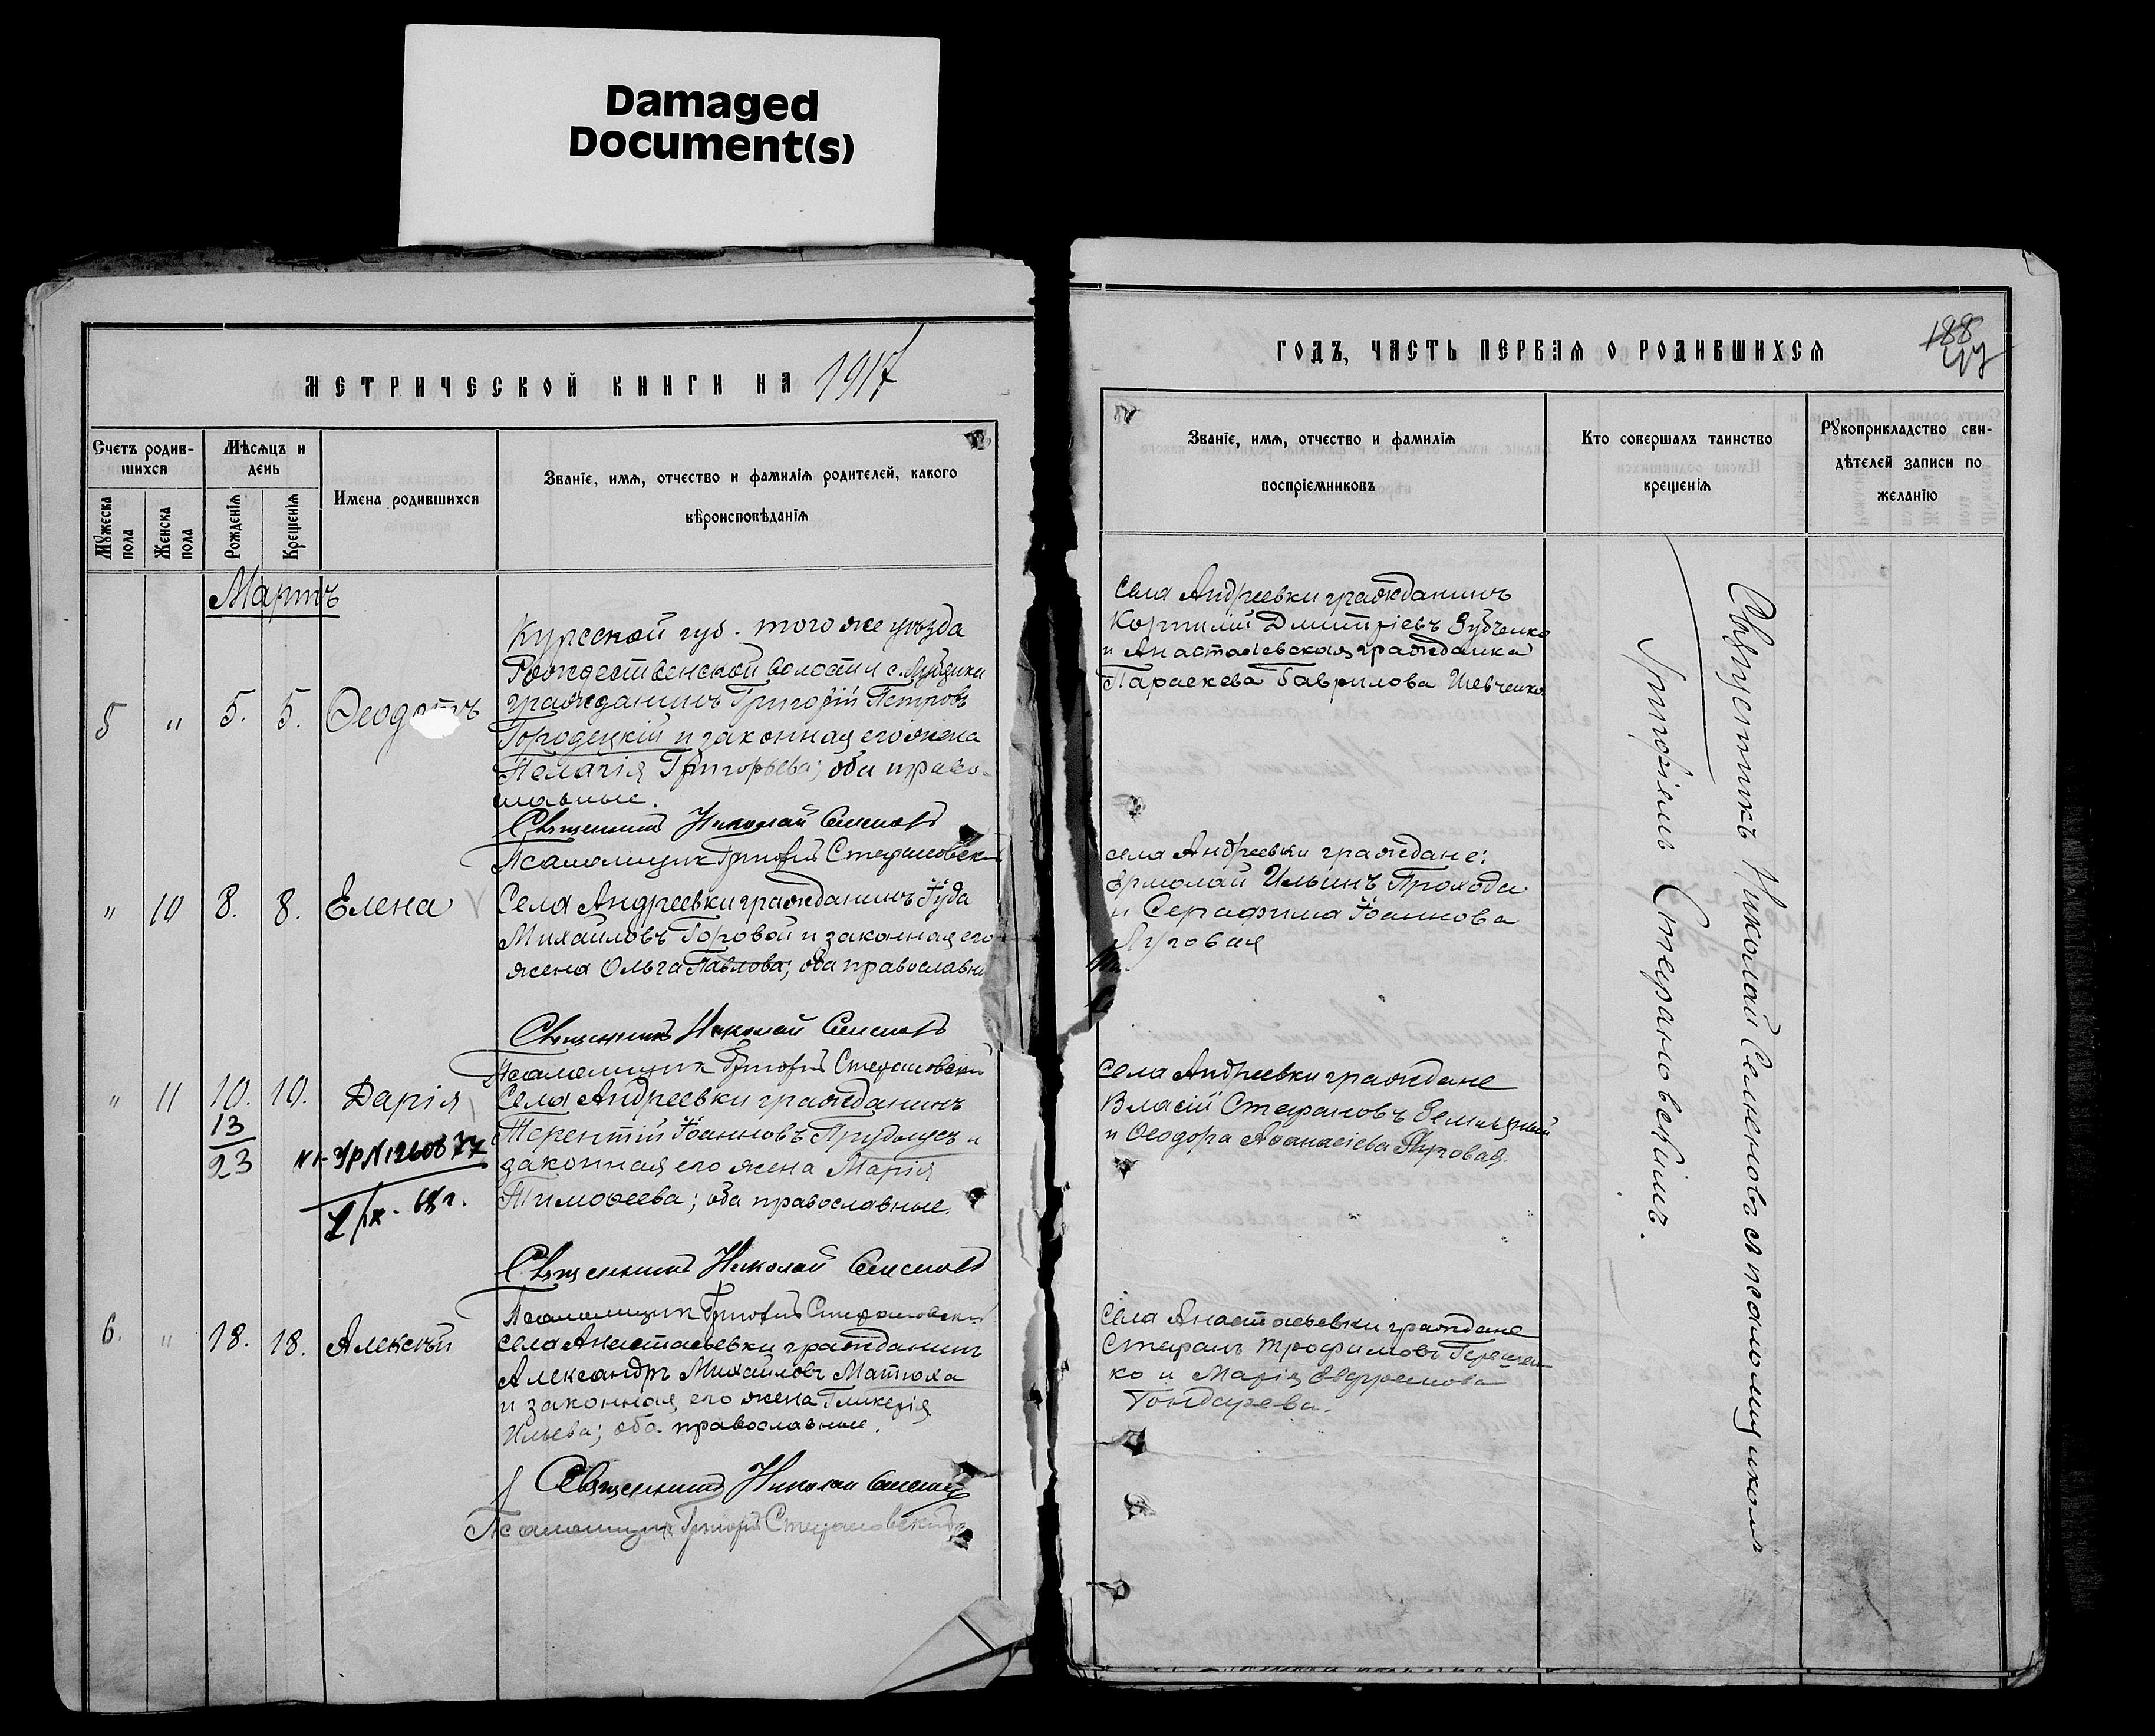 Damaged
Document(s)
МЕТРИЧЕСКОЙ КНИГИ НА 1917
Счетъ родив-
шихся
Мѣсяцъ и
день
Мужеска
пола
Женска
пола
Рожденія
Крещенія
Имена родившихся
Званіе, имя, отчество и фамилія родителей, какого
вѣроисповѣданія
Мартъ
5 " 5. 5.
Курской губ. того же уѣзда
Рождественской волости с.
гражданинъ Григорій Петровъ
Городецкій и законная его жена
Пелагія Григорьева; оба право-
славные.
Священникъ Николай Семеновъ
Псаломщик Григорій Стефановскій
" 10 8. 8. Елена
Села Андреевки гражданинъ Іуда
Михайловъ Горовой и законная его
жена Ольга Павлова; оба православн
Священникъ Николай Семеновъ
Псаломщик Григорій Стефановскій
" 11 10. 10. Дарія
13
23
Села Андреевки гражданинъ
Терентій Іоанновъ и
законная его жена Марія
Тимоѳеева; оба православные.
68 г.
Священникъ Николай Семеновъ
Псаломщик Григорій Стефановскій
6. " 18. 18. Алексѣй
села Анастасьевки гражданинъ
Александръ Михайловъ Матюха
и законная его жена Гликерія
Ильева; оба православные.
Священникъ Николай Семеновъ
Псаломщик Григорій Стефановскій
ГОДЪ, ЧАСТЬ ПЕРВАЯ О РОДИВШИХСЯ
188
Званіе, имя, отчество и фамилія
воспріемниковъ
Кто совершалъ таинство
крещенія
Рукоприкладство сви-
дѣтелей записи по
желанію
Села Андреевки гражданинъ
Корнилій Дмитріевъ Зубченко
и Анастасіевская гражданка
Параскева Гаврилова Шевченко
села Андреевки граждане:
Ермолай Ильинъ Проходы
и Серафима Іоаннова
Луговая
Села Андреевки граждане
Власій Стефановъ
и Ѳеодора Аѳанасіева
Села Анастасьевки граждане
Стефанъ Трофимовъ Герашен-
ко и Марія Евфремова
Гондарева.
Священникъ Николай Семеновъ и псаломщикомъ
Григоріемъ Стефановскимъ.